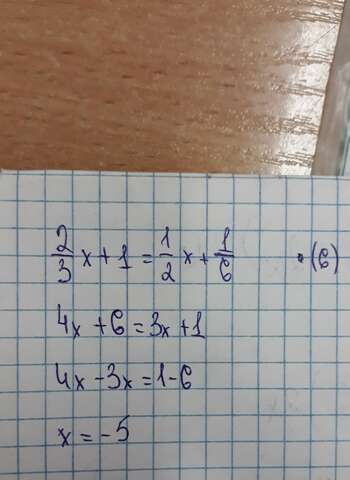 2/3 x + 1 = 1/2 x + 1/6 • (6)
4x + 6 = 3x + 1
4x - 3x = 1 - 6
x = -5